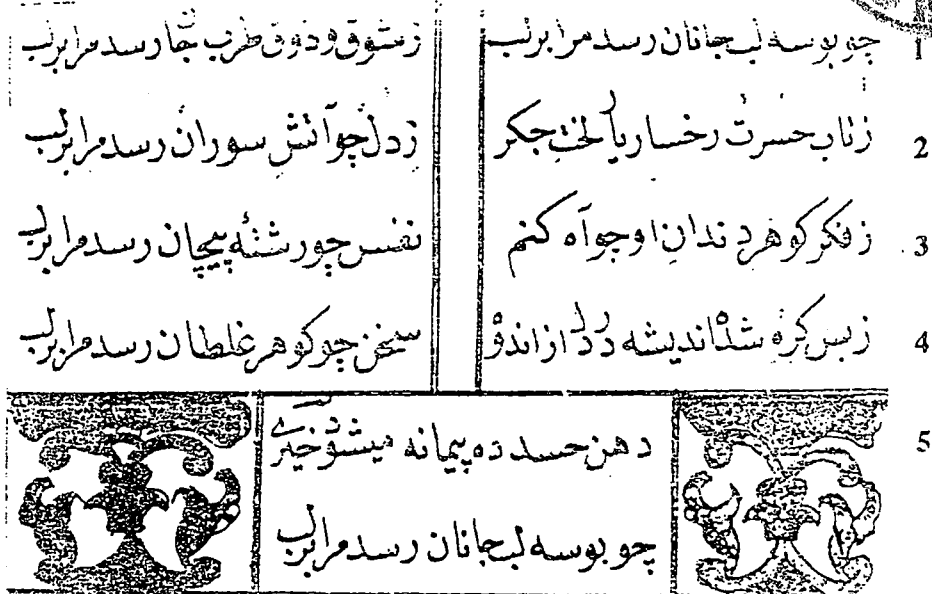 1 چو بوسه لب جانان رسد مرا برلب زشوق و ذوق طرب جا رسد مرا برلب
2 زتاب حسرت رخسار یار لخت جکر زدل چو آتش سوزان رسد مرا برلب
3 زفکر کوهر دندان او چو آه کنم نفس چو رشتهٔ پیچان رسد مرا برلب
4 زبس کره شد اندیشه در دل از اندوه سخن چو کوهر غلطان رسد مرا برلب
5 دهن حسد ده پیمانه میشود
چو بوسه لب جانان رسد مرا برلب